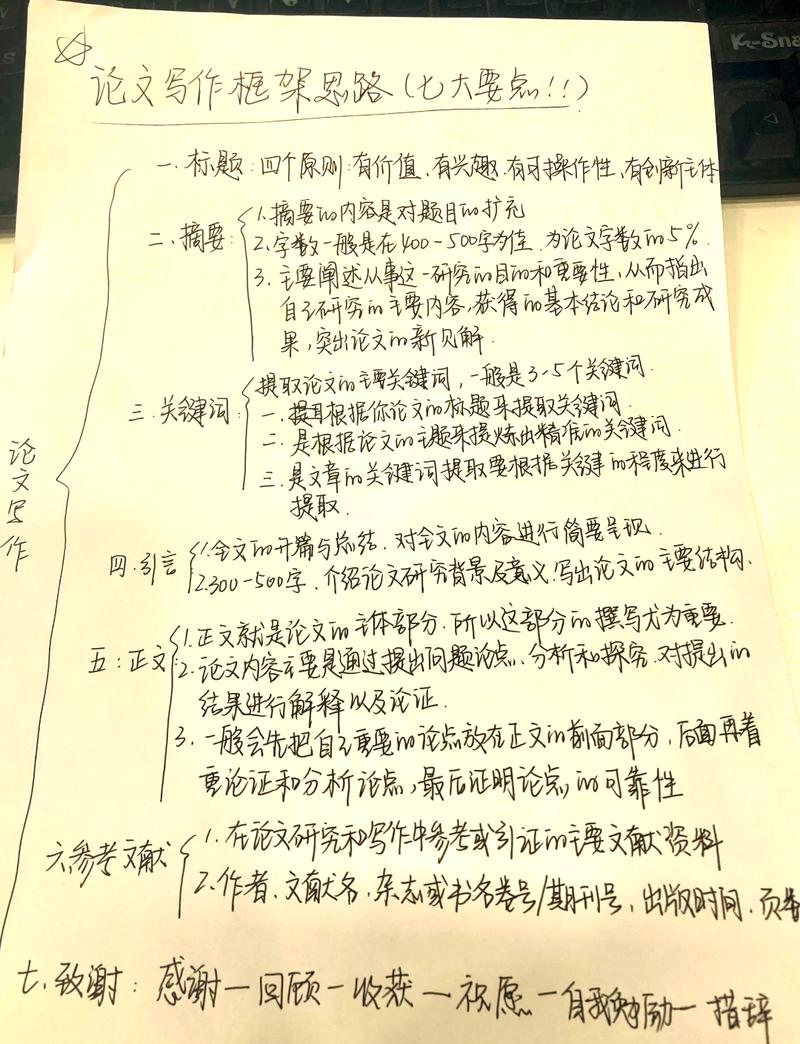 K-Sna
论文写作框架思路(七大要点!!)
一.标题:四个原则:有价值、有兴趣、有可操作性、有创新主体
二.摘要:
1.摘要的内容是对题目的扩充
2.字数一般是在400-500字为佳.为论文字数的5%.
3.主要阐述从事这一研究的目的和重要性,从而指出
自己研究的主要内容,获得的基本结论和研究成
果,突出论文的新见解.
三.关键词
提取论文的主要关键词,一般是3-5个关键词.
一.提取根据你论文的标题来提取关键词.
二.是根据论文的主题来提炼出精准的关键词.
三.是文章的关键词提取要根据关键的程度来进行
提取.
论文写作
四.引言
1.全文的开篇与总结.对全文的内容进行简要呈现.
2.300-500字.介绍论文研究背景及意义.写出论文的主要结构.
五:正文
1.正文就是论文的主体部分.所以这部分的撰写尤为重要.
2.论文内容主要是通过提出问题论点、分析和探究.对提出的
结果进行解释以及论证.
3.一般会先把自己重要的论点放在正文的前面部分,后面再着
重论证和分析论点,最后证明论点的可靠性
六.参考文献
1.在论文研究和写作中参考或引证的主要文献资料
2.作者、文献名、杂志或书名卷号/期刊号、出版时间、页
七.致谢:感谢一回顾一收获一祝愿一自我勉励一措辞